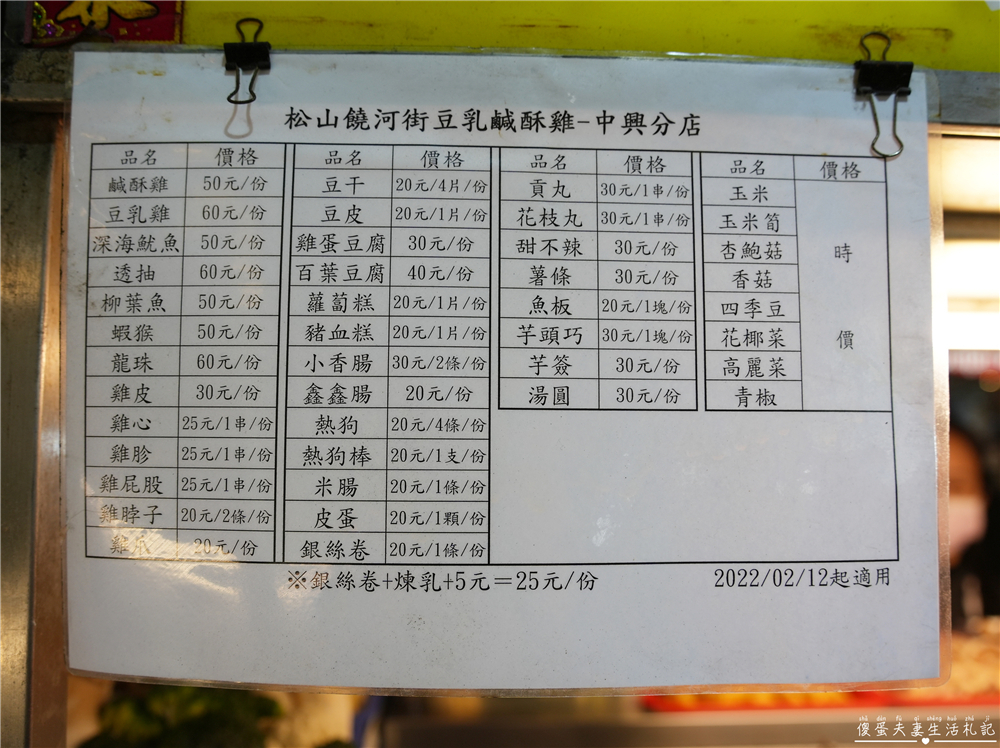 松山饒河街豆乳鹹酥雞-中興分店
品名 價格 品名 價格 品名 價格 品名 價格
鹹酥雞 50元/份 豆干 20元/4片/份 貢丸 30元/1串/份 玉米
豆乳雞 60元/份 豆皮 20元/1片/份 花枝丸 30元/1串/份 玉米筍
深海魷魚 50元/份 雞蛋豆腐 30元/份 甜不辣 30元/份 杏鮑菇 時
透抽 60元/份 百葉豆腐 40元/份 薯條 30元/份 香菇
柳葉魚 50元/份 蘿蔔糕 20元/1片/份 魚板 20元/1塊/份 四季豆
蝦猴 50元/份 豬血糕 20元/1片/份 芋頭巧 30元/1塊/份 花椰菜 價
龍珠 60元/份 小香腸 30元/2條/份 芋簽 30元/份 高麗菜
雞皮 30元/份 鑫鑫腸 20元/份 湯圓 30元/份 青椒
雞心 25元/1串/份 熱狗 20元/4條/份
雞胗 25元/1串/份 熱狗棒 20元/1支/份
雞屁股 25元/1串/份 米腸 20元/1條/份
雞脖子 20元/2條/份 皮蛋 20元/1顆/份
雞爪 20元/份 銀絲卷 20元/1條/份
※銀絲卷+煉乳+5元=25元/份 2022/02/12起適用
shǎ dàn fū qī shēng huó zhá jì
傻蛋夫妻生活札記